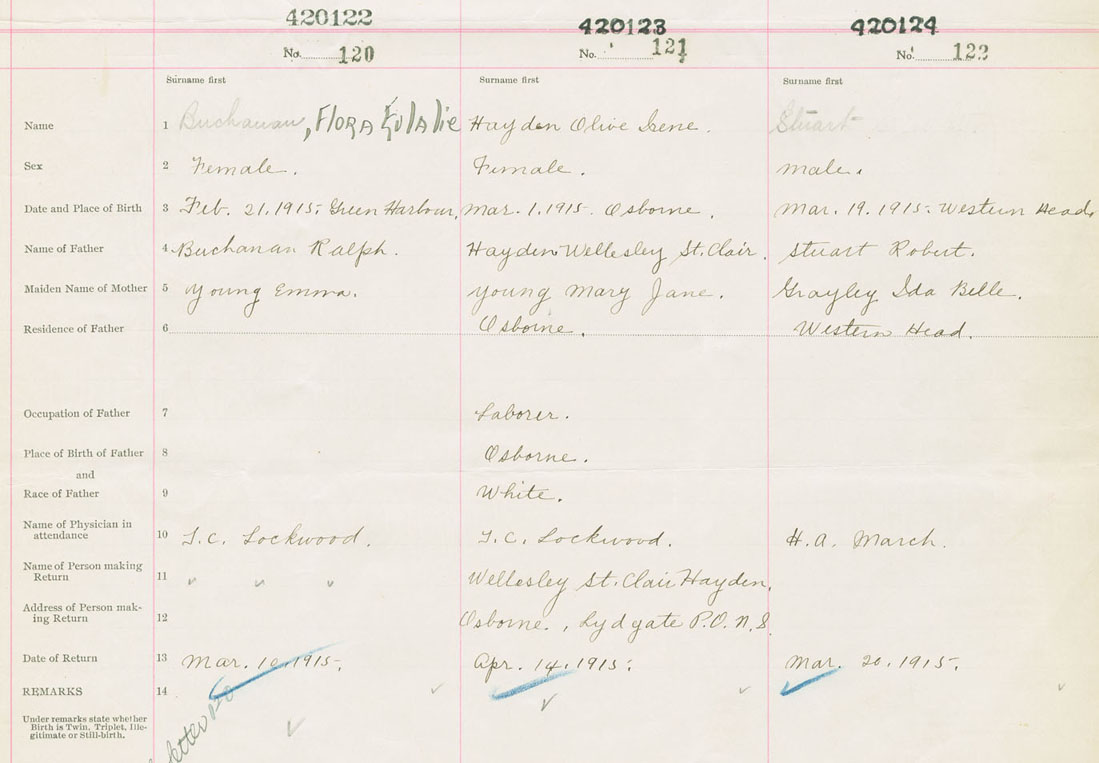 420122 420123 420124
No. 120 No. 121 No. 122
Surname first Surname first Surname first
Name 1 Buchanan, FLORA EulAlie Hayden Olive Irene. Stuart
Sex 2 Female. Female. Male.
Date and Place of Birth 3 Feb. 21, 1915, Green Harbour, Mar. 1, 1915. Osborne. Mar. 19. 1915. Western Head.
Name of Father 4 Buchanan Ralph. Hayden Wellesley St. Clair. Stuart Robert.
Maiden Name of Mother 5 Young Emma. Young Mary Jane. Grayley Ida Belle.
Residence of Father 6 Osborne. Western Head.
Occupation of Father 7 Laborer.
Place of Birth of Father 8 Osborne.
and
Race of Father 9 White.
Name of Physician in
attendance 10 L.C. Lockwood. L.C. Lockwood. H.A. March.
Name of Person making
Return 11 " " " Wellesley St. Clair Hayden.
Address of Person mak-
ing Return 12 Osborne., Lydgate P.O. N.S.
Date of Return 13 Mar. 10, 1915. Apr. 14, 1915. Mar. 20, 1915.
REMARKS 14
Under remarks state whether
Birth is Twin, Triplet, Ille-
gitimate or Still-birth.
letter